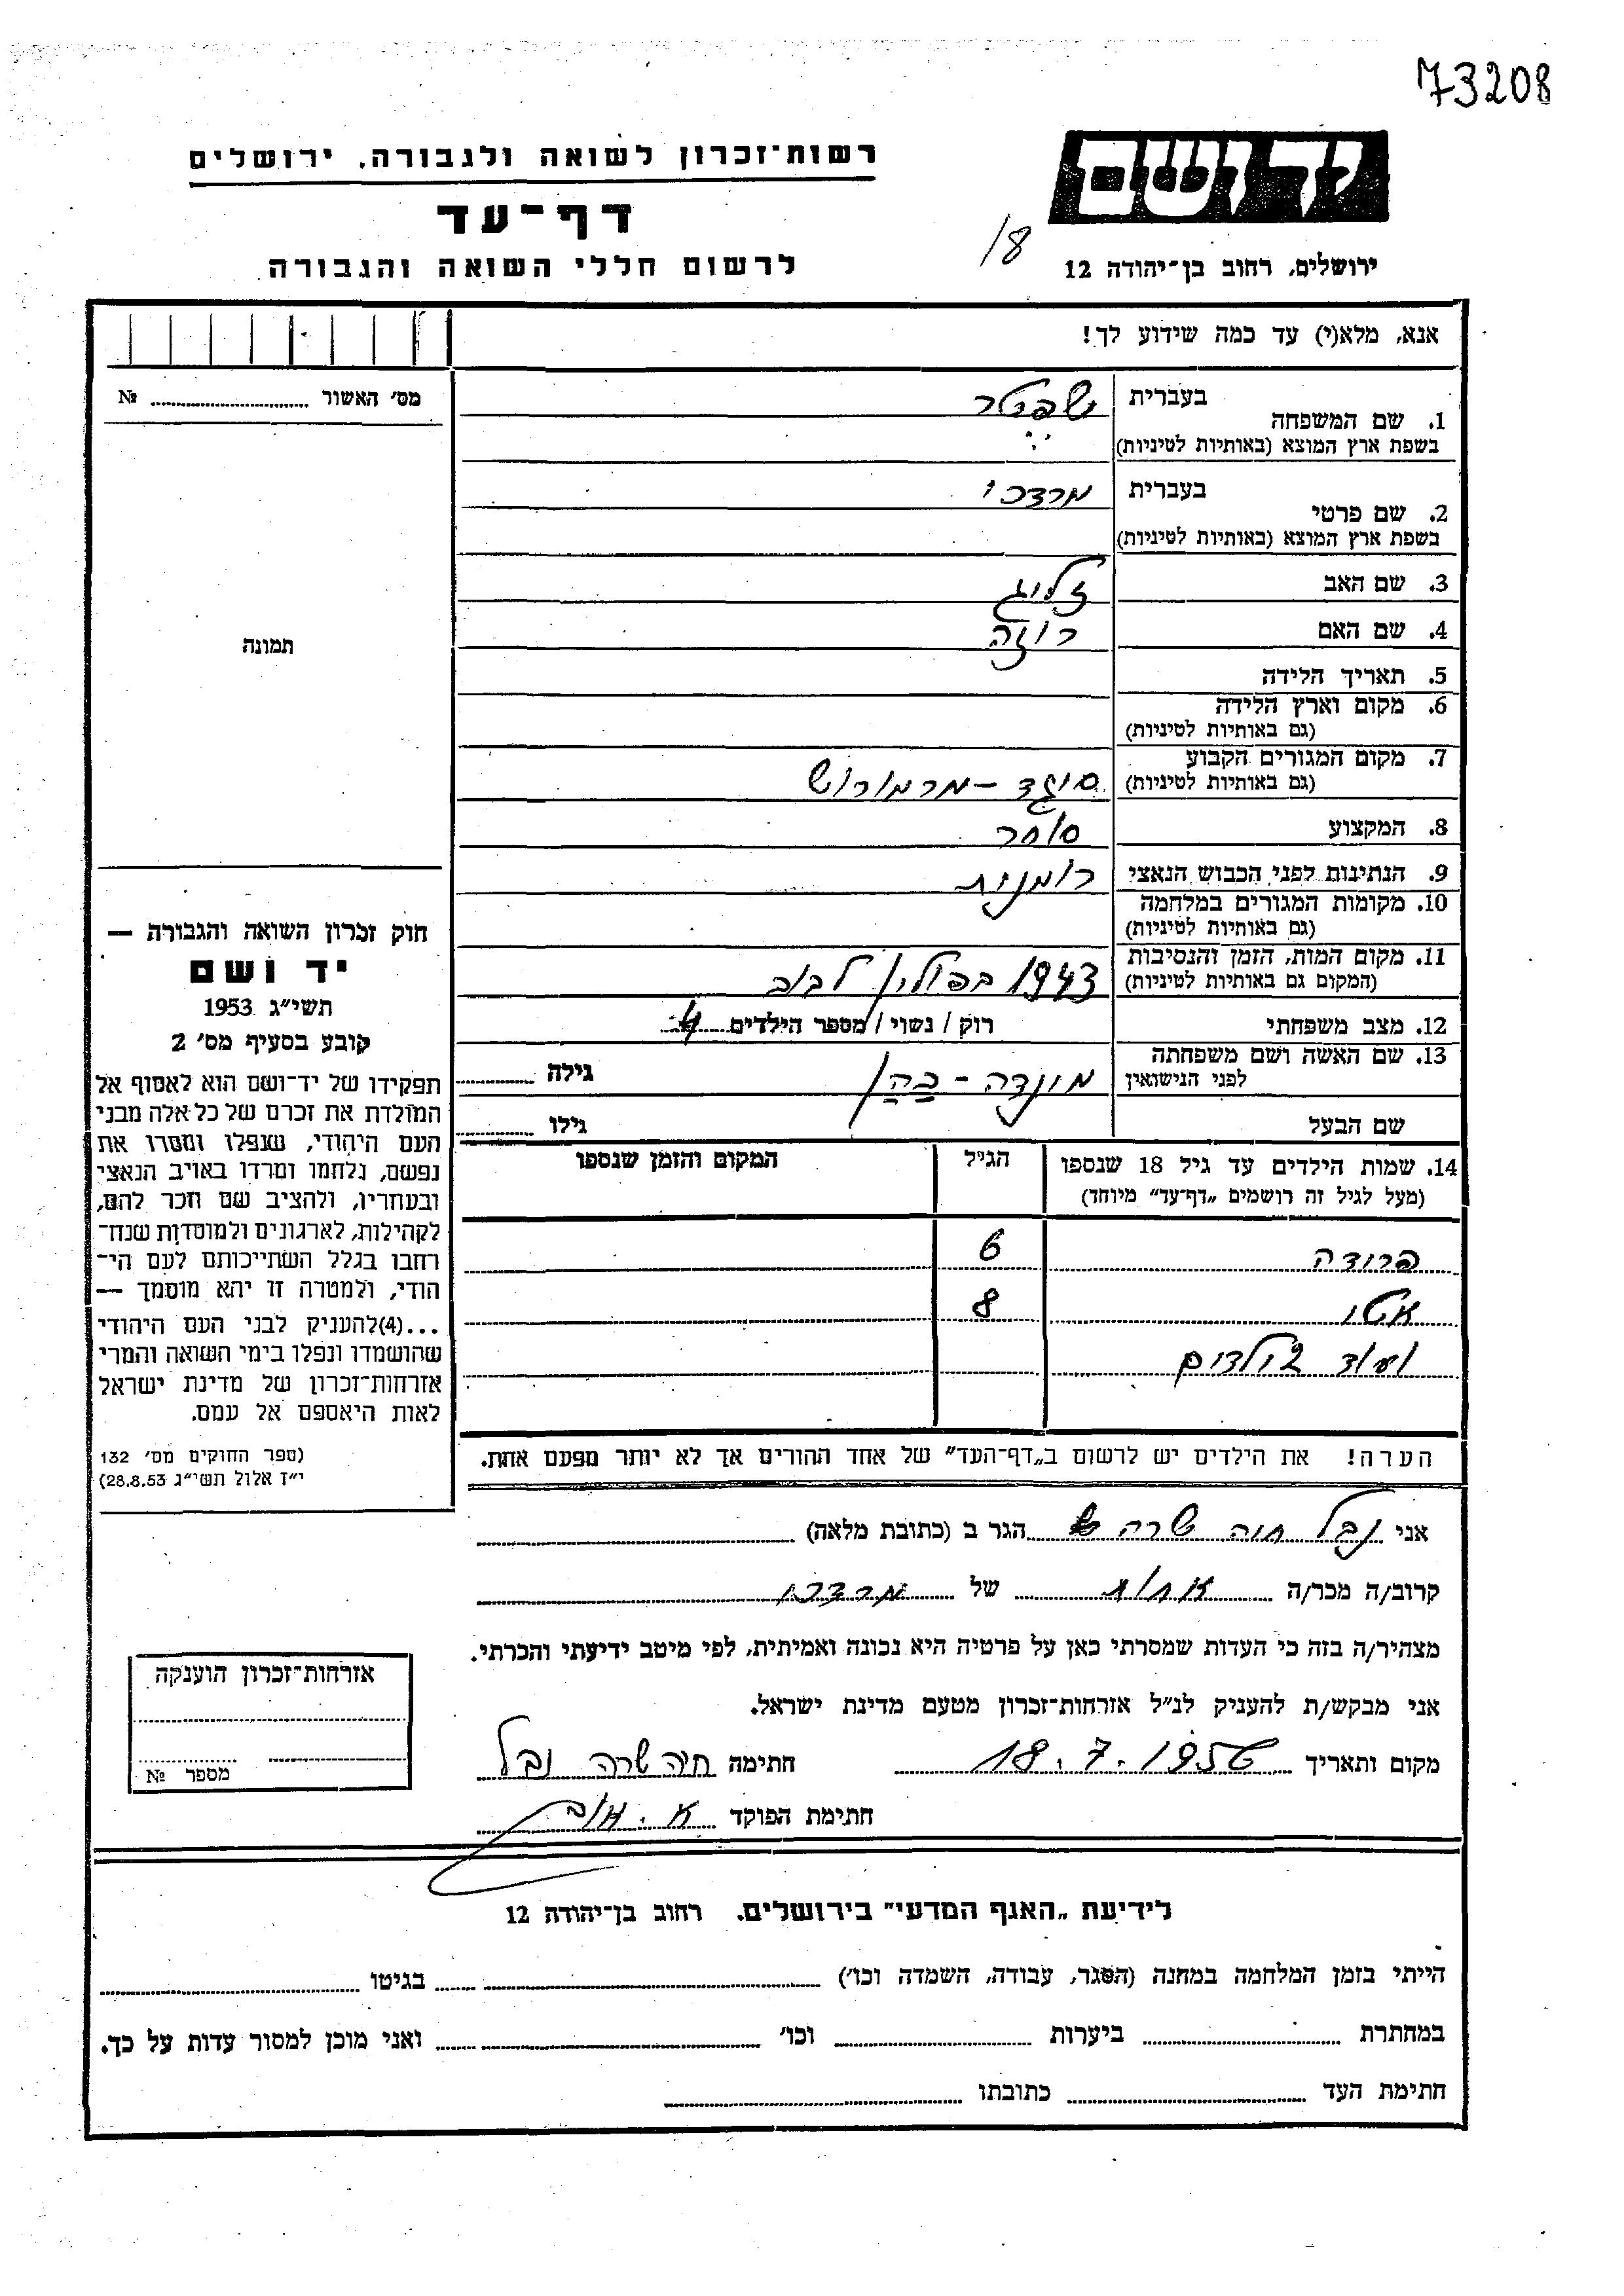 73208
יד ושם
רשות־זכרון לשואה ולגבורה, ירושלים
דף־עד
לרשום חללי השואה והגבורה
18/
ירושלים, רחוב בן־יהודה 12
אנא, מלא(י) עד כמה שידוע לך!
מס׳ האשור № 
תמונה
1. שם המשפחה בעברית שפטר
בשפת ארץ המוצא (באותיות לטיניות)
2. שם פרטי בעברית מרדכי
בשפת ארץ המוצא (באותיות לטיניות)
3. שם האב זליג
4. שם האם רוזה
5. תאריך הלידה
6. מקום וארץ הלידה
(גם באותיות לטיניות)
7. מקום המגורים הקבוע
(גם באותיות לטיניות) סיגד – מרמורוש
8. המקצוע סוחר
9. הנתינות לפני הכבוש הנאצי רומנית
10. מקומות המגורים במלחמה
(גם באותיות לטיניות)
11. מקום המות, הזמן והנסיבות
(המקום גם באותיות לטיניות) 1943 בפולין לבוב
12. מצב משפחתי רוק / נשוי / מספר הילדים 4
13. שם האשה ושם משפחתה
לפני הנישואין מונדה - כהן גילה
שם הבעל גילו
14. שמות הילדים עד גיל 18 שנספו הגיל המקום והזמן שנספו
(מעל לגיל זה רושמים „דף־עד״ מיוחד)
פרודה 6
אטי 8
ועוד 2 ילדים
הערה! את הילדים יש לרשום ב„דף־העד״ של אחד ההורים אך לא יותר מפעם אחת.
חוק זכרון השואה והגבורה —
יד ושם
תשי״ג 1953
קובע בסעיף מס׳ 2
תפקידו של יד־ושם הוא לאסוף אל
המולדת את זכרם של כל אלה מבני
העם היהודי, שנפלו ומסרו את
נפשם, נלחמו ומרדו באויב הנאצי
ובעוזריו, ולהציב שם וזכר להם,
לקהילות, לארגונים ולמוסדות שנח־
רבו בגלל השתייכותם לעם הי־
הודי, ולמטרה זו יהא מוסמך —
...(4)להעניק לבני העם היהודי
שהושמדו ונפלו בימי השואה והמרי
אזרחות־זכרון של מדינת ישראל
לאות היאספם אל עמם.
(ספר החוקים מס׳ 132
י״ז אלול תשי״ג 28.8.53)
אני נבל חיה שרה הגר ב (כתובת מלאה)
קרוב/ה מכר/ה אחות של מרדכי
מצהיר/ה בזה כי העדות שמסרתי כאן על פרטיה היא נכונה ואמיתית, לפי מיטב ידיעתי והכרתי.
אני מבקש/ת להעניק לנ״ל אזרחות־זכרון מטעם מדינת ישראל.
מקום ותאריך 18.7.1956 חתימה חיה שרה נבל
חתימת הפוקד א.
אזרחות־זכרון הוענקה
מספר №
לידיעת „האגף המדעי״ בירושלים, רחוב בן־יהודה 12
הייתי בזמן המלחמה במחנה (הסגר, עבודה, השמדה וכו׳) בגיטו
במחתרת ביערות וכו׳ ואני מוכן למסור עדות על כך.
חתימת העד כתובתו